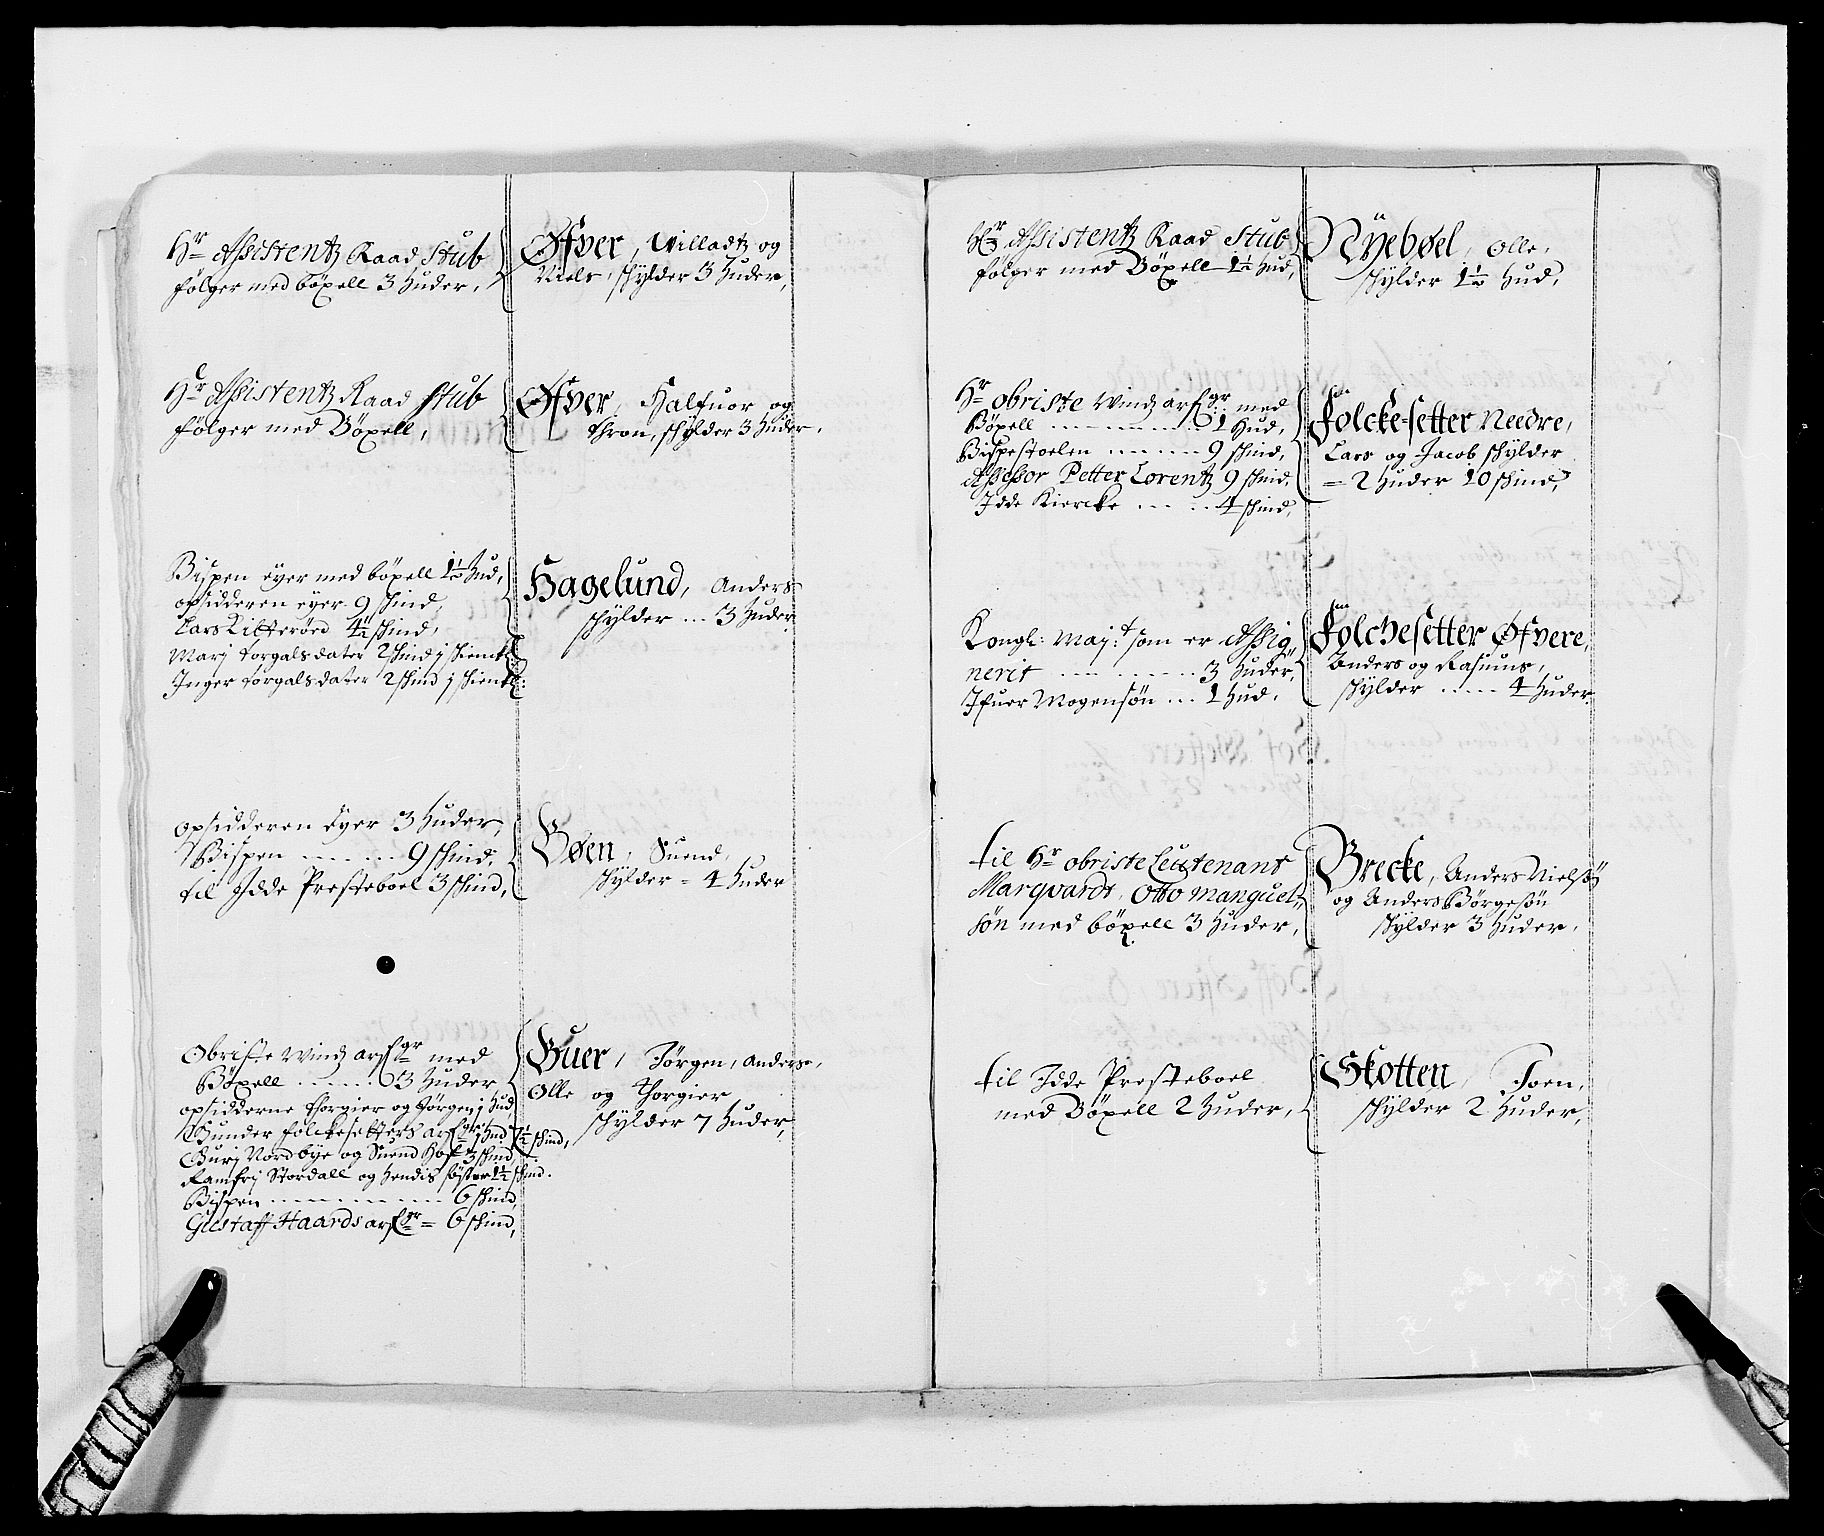 Hr Assistentz Raad Stub
følger med böxell 3 huder,
Øfver, Willadtz og
Niels, schylder 3 huder,
Hr Assistentz Raad Stub
følger med Böxell,
Øfver, Halfuor og
thron, schylder 3 huder,
Bispen eyer med böxell 1½ hud,
opsidderen eyer 9 skind,
Lars Litteröed 4½ skind,
Marj torgalsdater 2 skind j
Inger torgalsdater 2 skind j
Hagelund, Anders
schylder ... 3 huder
opsidderen Eyer 3 huder,
Bispen ...... 9 skind,
til Idde Presteboel 3 skind,
Bøen, Suend,
schylder = 4 huder
Obriste Windz arfgr med
Böxell ...... 3 huder,
opsidderne thorgier og Jörgen j hud
Gunder folckesetters arfgr j hud 7½ skind,
Gurj Nordbye og Suend Hof 3 skind,
Ramfrj Stordall og hendis söster 1½ skind.
Bispen ............ 6 skind,
Gustaff Haards arfgr = 6 skind,
Guer, Jörgen, Anders,
Olle og Thorgier
schylder 7 huder,
Hr Assistentz Raad Stub
følger med Böxell 1½ hud,
Nyebøel, olle,
schylder 1½ hud,
Hr obriste Windz arfgr med
Böxell ............ 1 hud,
Bispestoelen ...... 9 skind,
Assessor Petter Lorentz 9 skind,
Idde Kiercke ..... 4 skind,
Folcke-setter Needre,
Lars og Jacob schylder
= 2 huder 10 skind,
Kongl: May:t som er Assig„
nerit ......... 3 huder,
Ifuer Mogensön ... 1 hud.
Folchesetter Øfvere,
Anders og Rasmus,
schylder ..... 4 huder.
til Hr obriste Leutenant
Marqvardt, Otto manguel„
sön med böxell 3 huder,
Brecke, Anders Nielsö
og Anders Börgesön
schylder 3 huder,
til Idde Presteboel
med Böxell 2 huder,
Skotten, Joen,
schylder 2 huder,